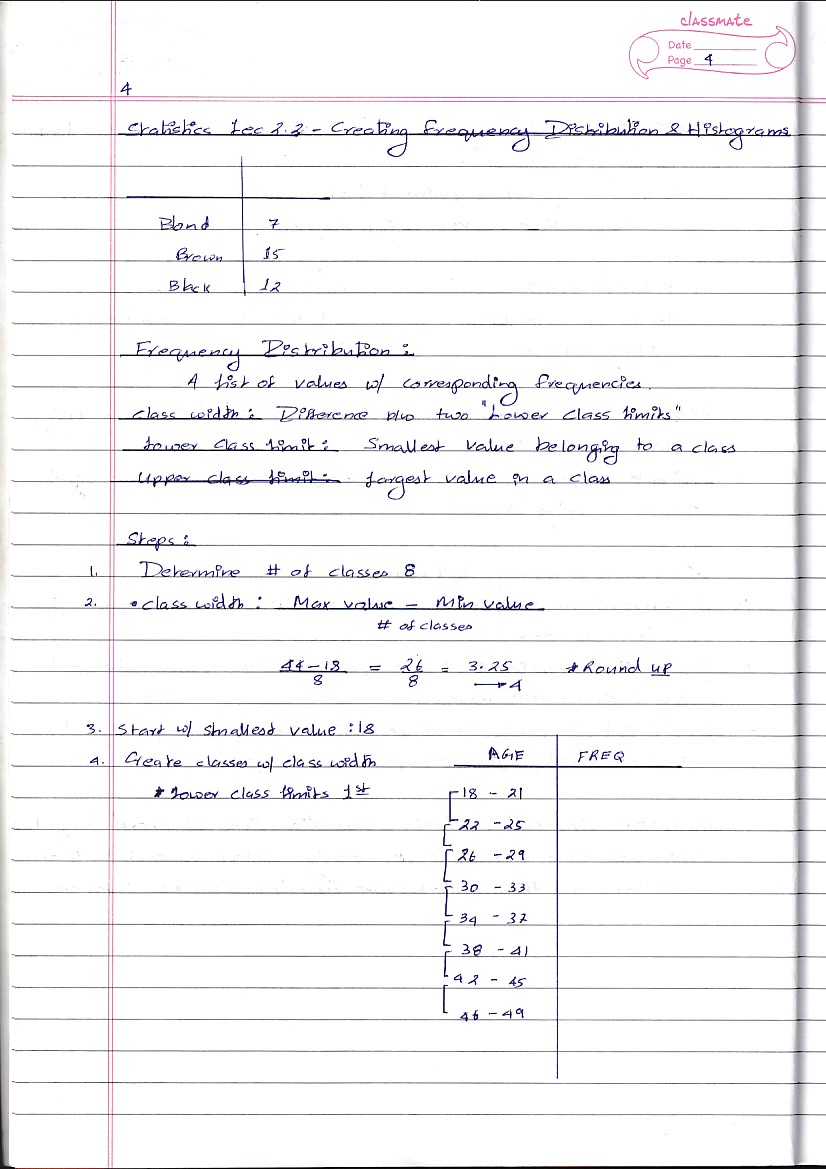 classmate
Date
Page 4
4
Statistics Lec 2.2 - Creating Frequency Distribution & Histograms
Blond 7
Brown 15
Black 12
Frequency Distribution :
A list of values w/ corresponding frequencies.
Class width : Difference b/w two "Lower Class limits"
Lower Class limit : Smallest value belonging to a class
Upper class limit : Largest value in a class
Steps :
1. Determine # of classes 8
2. • class width : Max value - Min value
# of classes
44-18 = 26 = 3.25 * Round up
8 8 → 4
3. Start w/ smallest value : 18
4. Create classes w/ class width
AGE FREQ
* Lower class limits 1st
18 - 21
22 - 25
26 - 29
30 - 33
34 - 37
38 - 41
42 - 45
46 - 49